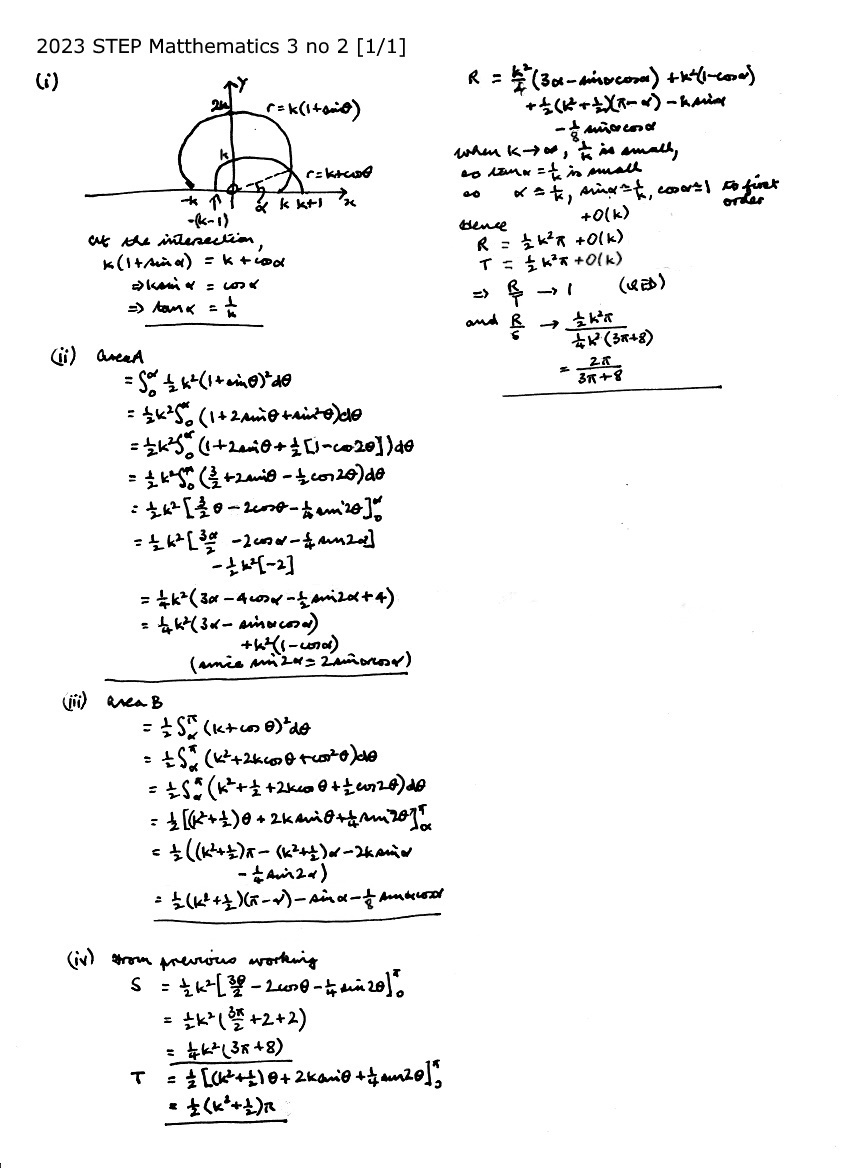 2023 STEP Matthematics 3 no 2 [1/1]
(i)
Y
2k
r = k(1+sinθ)
k
r = k+cosθ
-k
-(k-1)
α
k
k+1
x
at the intersection,
k(1+sin α) = k + cosα
⇒ ksin α = cosα
⇒ tanα = 1/k
(ii) area A
= ∫₀^α ½k²(1+sinθ)²dθ
= ½k²∫₀^α (1+2sinθ+sin²θ)dθ
= ½k²∫₀^α (1+2sinθ+½[1-cos2θ])dθ
= ½k²∫₀^α (3/2+2sinθ-½cos2θ)dθ
= ½k²[3/2 θ - 2cosθ - ¼sin2θ]₀^α
= ½k²[3α/2 - 2cosα - ¼sin2α]
- ½k²[-2]
= ¼k²(3α - 4cosα - ½sin2α + 4)
= ¼k²(3α - sinαcosα)
+k²(1-cosα)
(since sin2α = 2sinαcosα)
(iii) area B
= ½∫_α^π (k+cosθ)²dθ
= ½∫_α^π (k²+2kcosθ+cos²θ)dθ
= ½∫_α^π (k²+½+2kcosθ+½cos2θ)dθ
= ½[(k²+½)θ + 2ksinθ+¼sin2θ]_α^π
= ½((k²+½)π - (k²+½)α - 2ksinα
- ¼sin2α)
= ½(k²+½)(π-α) - sinα - ⅛sinαcosα
(iv) from previous working
S = ½k²[3θ/2 - 2cosθ - ¼sin2θ]₀^π
= ½k²(3π/2 + 2 + 2)
= ¼k²(3π+8)
T = ½[(k²+½)θ + 2ksinθ + ¼sin2θ]₀^π
= ½(k²+½)π
R = k²/4(3α - sinαcosα) + k²(1-cosα)
+½(k²+½)(π-α) - ksinα
-⅛sinαcosα
when k→∞, 1/k is small,
so tanα = 1/k is small
so α ≈ 1/k, sinα ≈ 1/k, cosα ≈ 1 to first
order
+O(k)
Hence
R = ½k²π + O(k)
T = ½k²π + O(k)
⇒ R/T → 1 (QED)
and R/S → ½k²π / ¼k²(3π+8)
= 2π / 3π+8